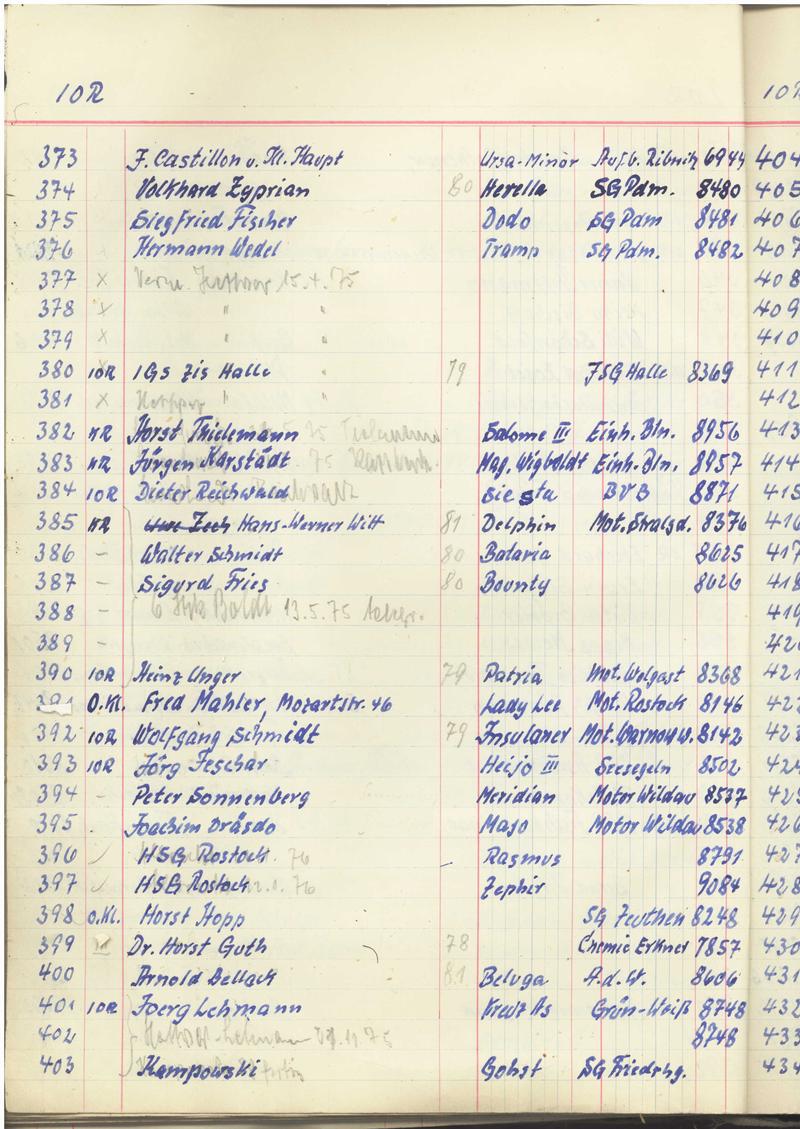 10R 10R
373 F. Castillon v. Kl. Haupt Ursa-Minor Aufb. Ribnitz 6944 404
374 Volkhard Zyprian 80 Herella SG Pdm. 8480 405
375 Siegfried Fischer Dodo SG Pdm 8481 406
376 Hermann Wedel Tramp SG Pdm. 8482 407
377 x 15.4.75 408
378 x " " 409
379 x " " 410
380 10R IGs Zis Halle 79 FSG Halle 8369 411
381 x " 412
382 KR Horst Thielemann Salome III Einh. Bln. 8956 413
383 KR Jürgen Karstädt Mag. Wigboldt Einh. Bln. 8957 414
384 10R Dieter Reichwald Siesta BVB 8871 415
385 KR Uwe Zech Hans-Werner Witt 81 Delphin Mot. Stralsd. 8376 416
386 - Walter Schmidt 80 Batavia 8625 417
387 - Sigurd Fries 80 Bounty 8626 418
388 - Boldt 13.5.75 419
389 - 420
390 10R Heinz Unger 79 Patria Mot. Wolgast 8368 421
391 O.Kl. Fred Mahler, Mozartstr. 46 Lady Lee Mot. Rostock 8146 422
392 10R Wolfgang Schmidt 79 Insulaner Mot. Warnow w. 8142 423
393 10R Jörg Feschar Heijo III Seesegeln 8502 424
394 - Peter Sonnenberg Meridian Motor Wildau 8537 425
395 . Joachim Dräsdo Majo Motor Wildau 8538 426
396 HSG Rostock 76 Rasmus 8791 427
397 HSG Rostock 76 Zephir 9084 428
398 O.Kl. Horst Hopp SG Zeuthen 8248 429
399 Dr. Horst Guth 78 Chemie Erkner 7857 430
400 Arnold Dellack 81 Beluga A.d.W. 8606 431
401 10R Joerg Lehmann Kreuz As Grün-Weiß 8748 432
402 11.75 8748 433
403 Kampowski Gohst SG Friedrhg. 434